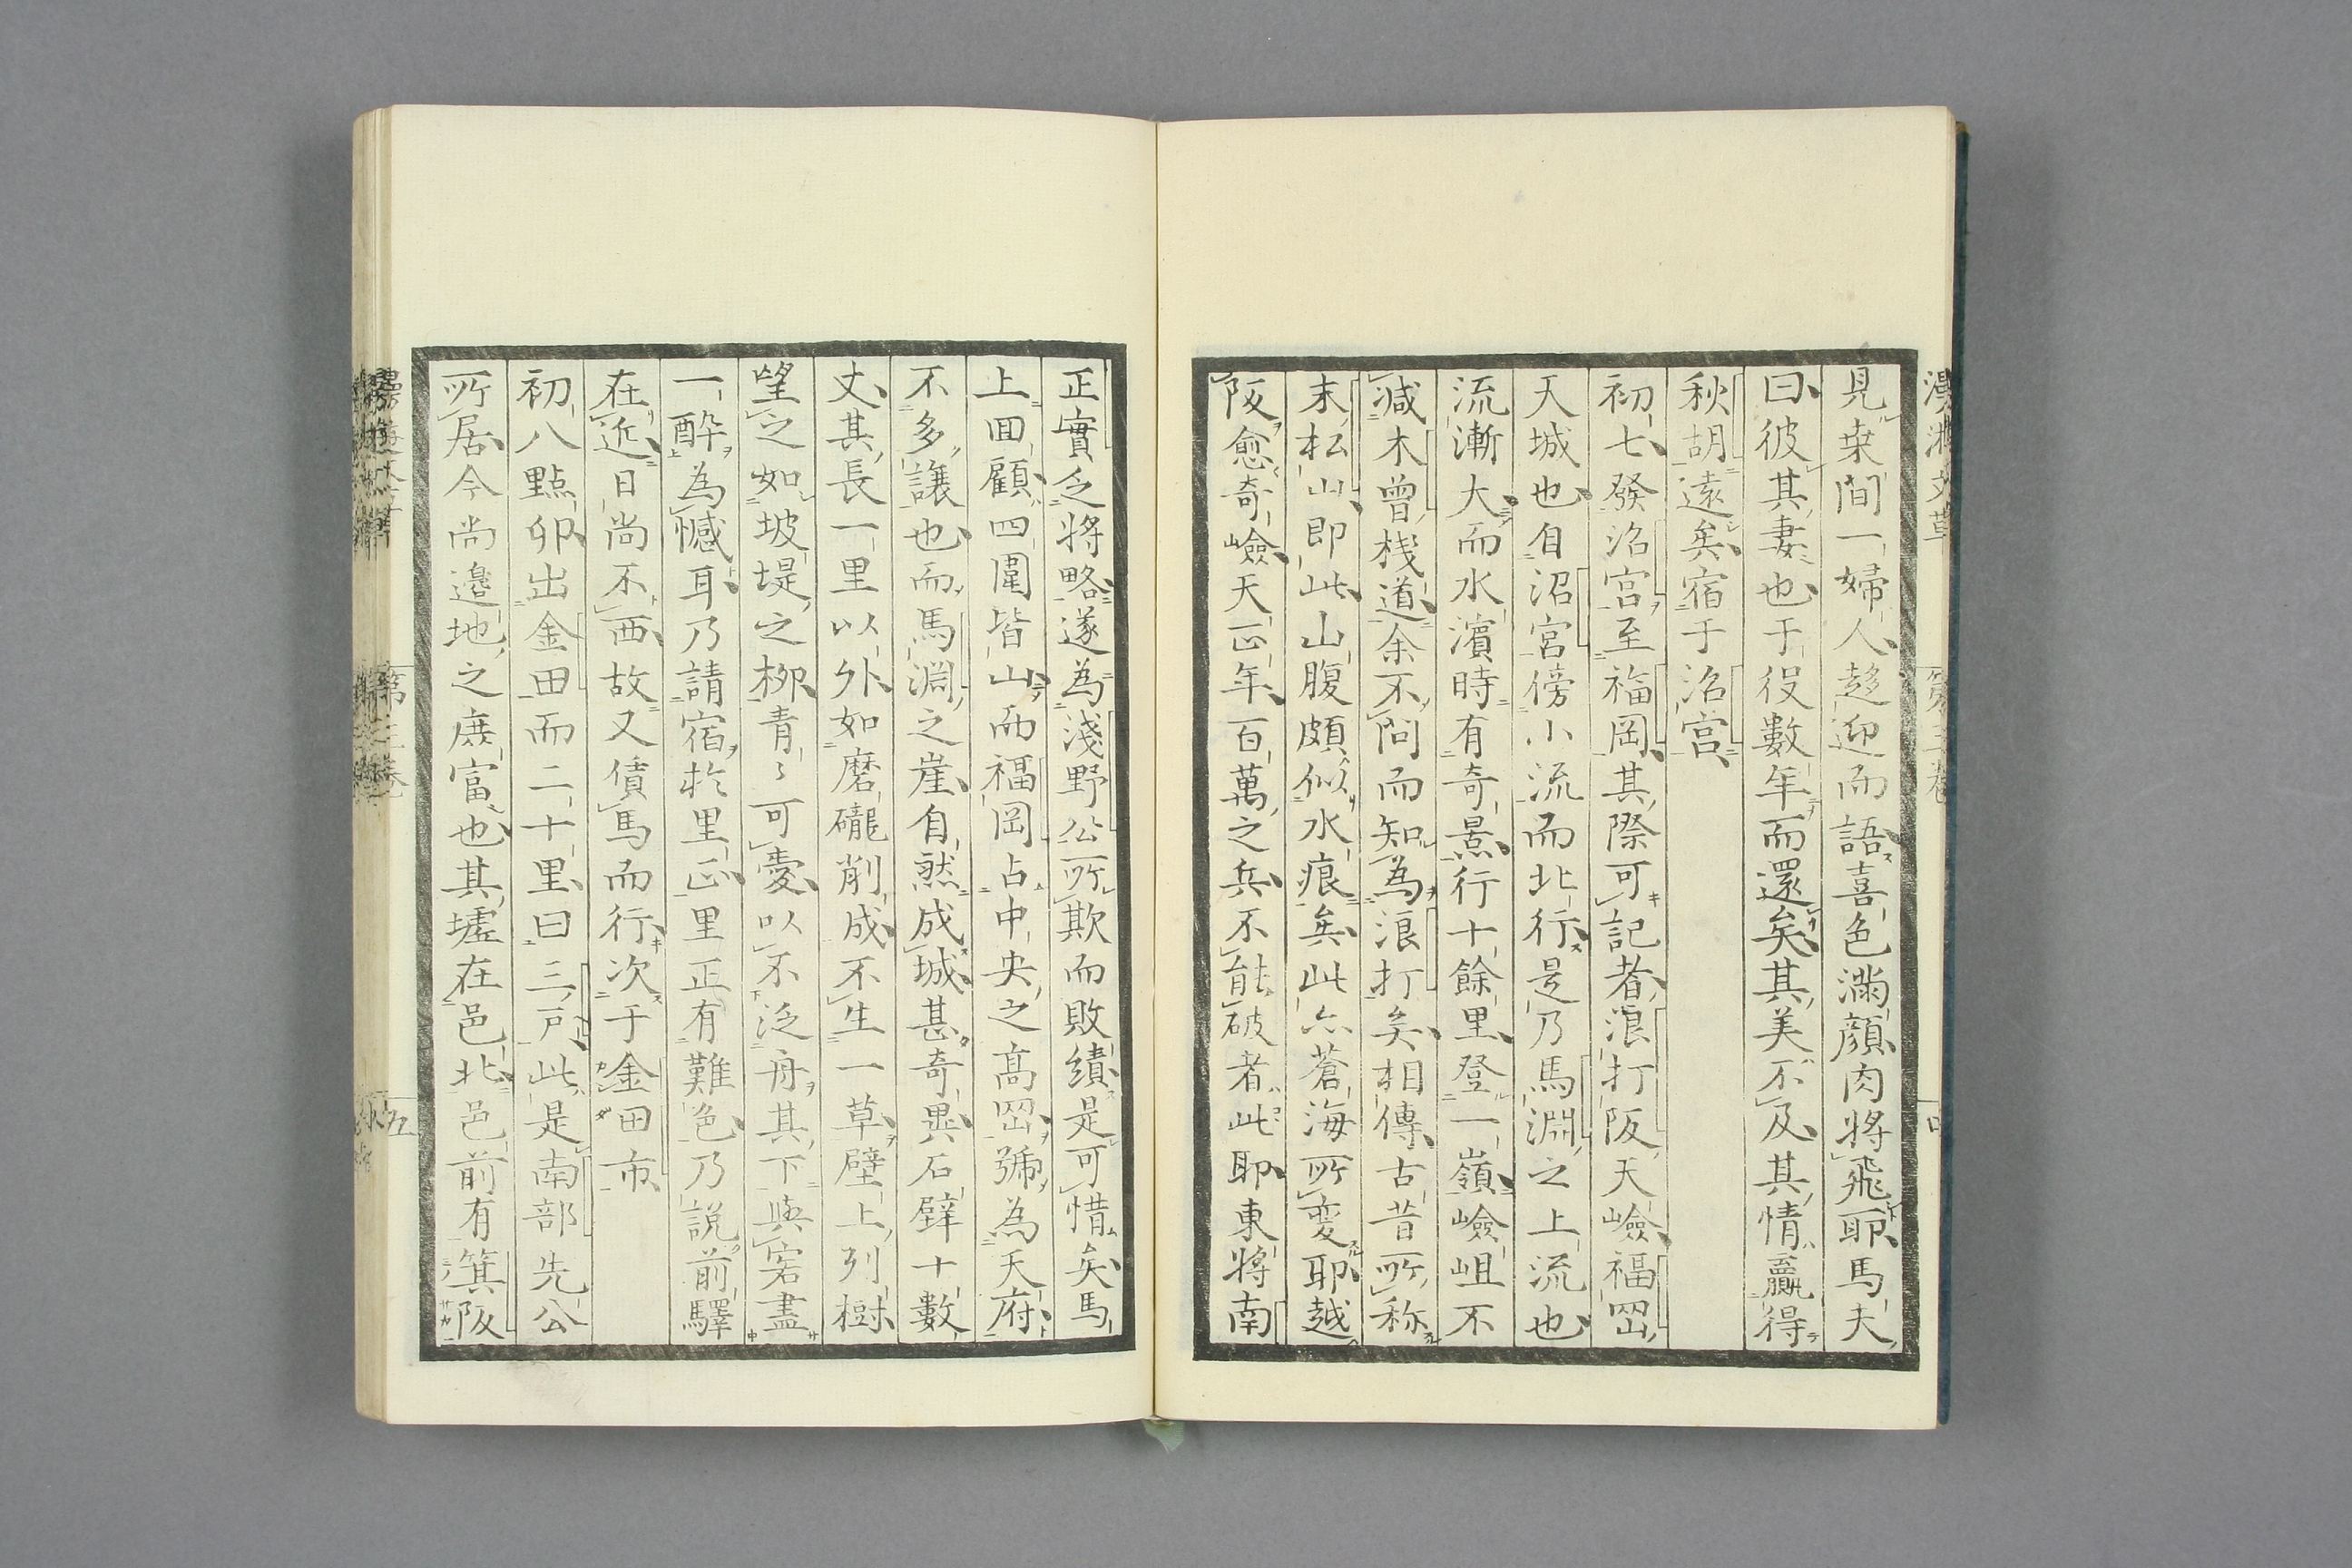 見桒間一婦人趍迎而語喜色滿顏肉將飛耶馬夫
曰彼其妻也于役數年而還矣其美不及其情贏得
秋胡遠矣宿于沼宮
初七發沼宮至福岡其際可記者浪打阪天嶮福罡
天城也自沼宮傍小流而北行是乃馬淵之上流也
流漸大而水濱時有奇景行十餘里登一嶺嶮岨不
減木曾棧道余不問而知為浪打矣相傳古昔所称
末松山即此山腹頗似水痕矣此亦蒼海所変耶越
阪愈奇嶮天正年百萬之兵不能破者此耶東將南
正實乏將略遂為淺野公所欺而敗績是可惜矣馬
上回顧四圍皆山而福岡占中央之高罡號為天府
不多讓也而馬淵之崖自然成城甚奇異石壁十數
丈其長一里以外如磨礲削成不生一草壁上列樹
望之如坡堤之柳青〻可憂以不泛舟其下與客盡
一醉為憾耳乃請宿於里正里正有難色乃說前驛
在近日尚不西故又債馬而行次于金田市
初八點卯出金田而二十里曰三戶此是南部先公
所居今尚邊地之庶富也其墟在邑北邑前有箕阪
第三卷
五